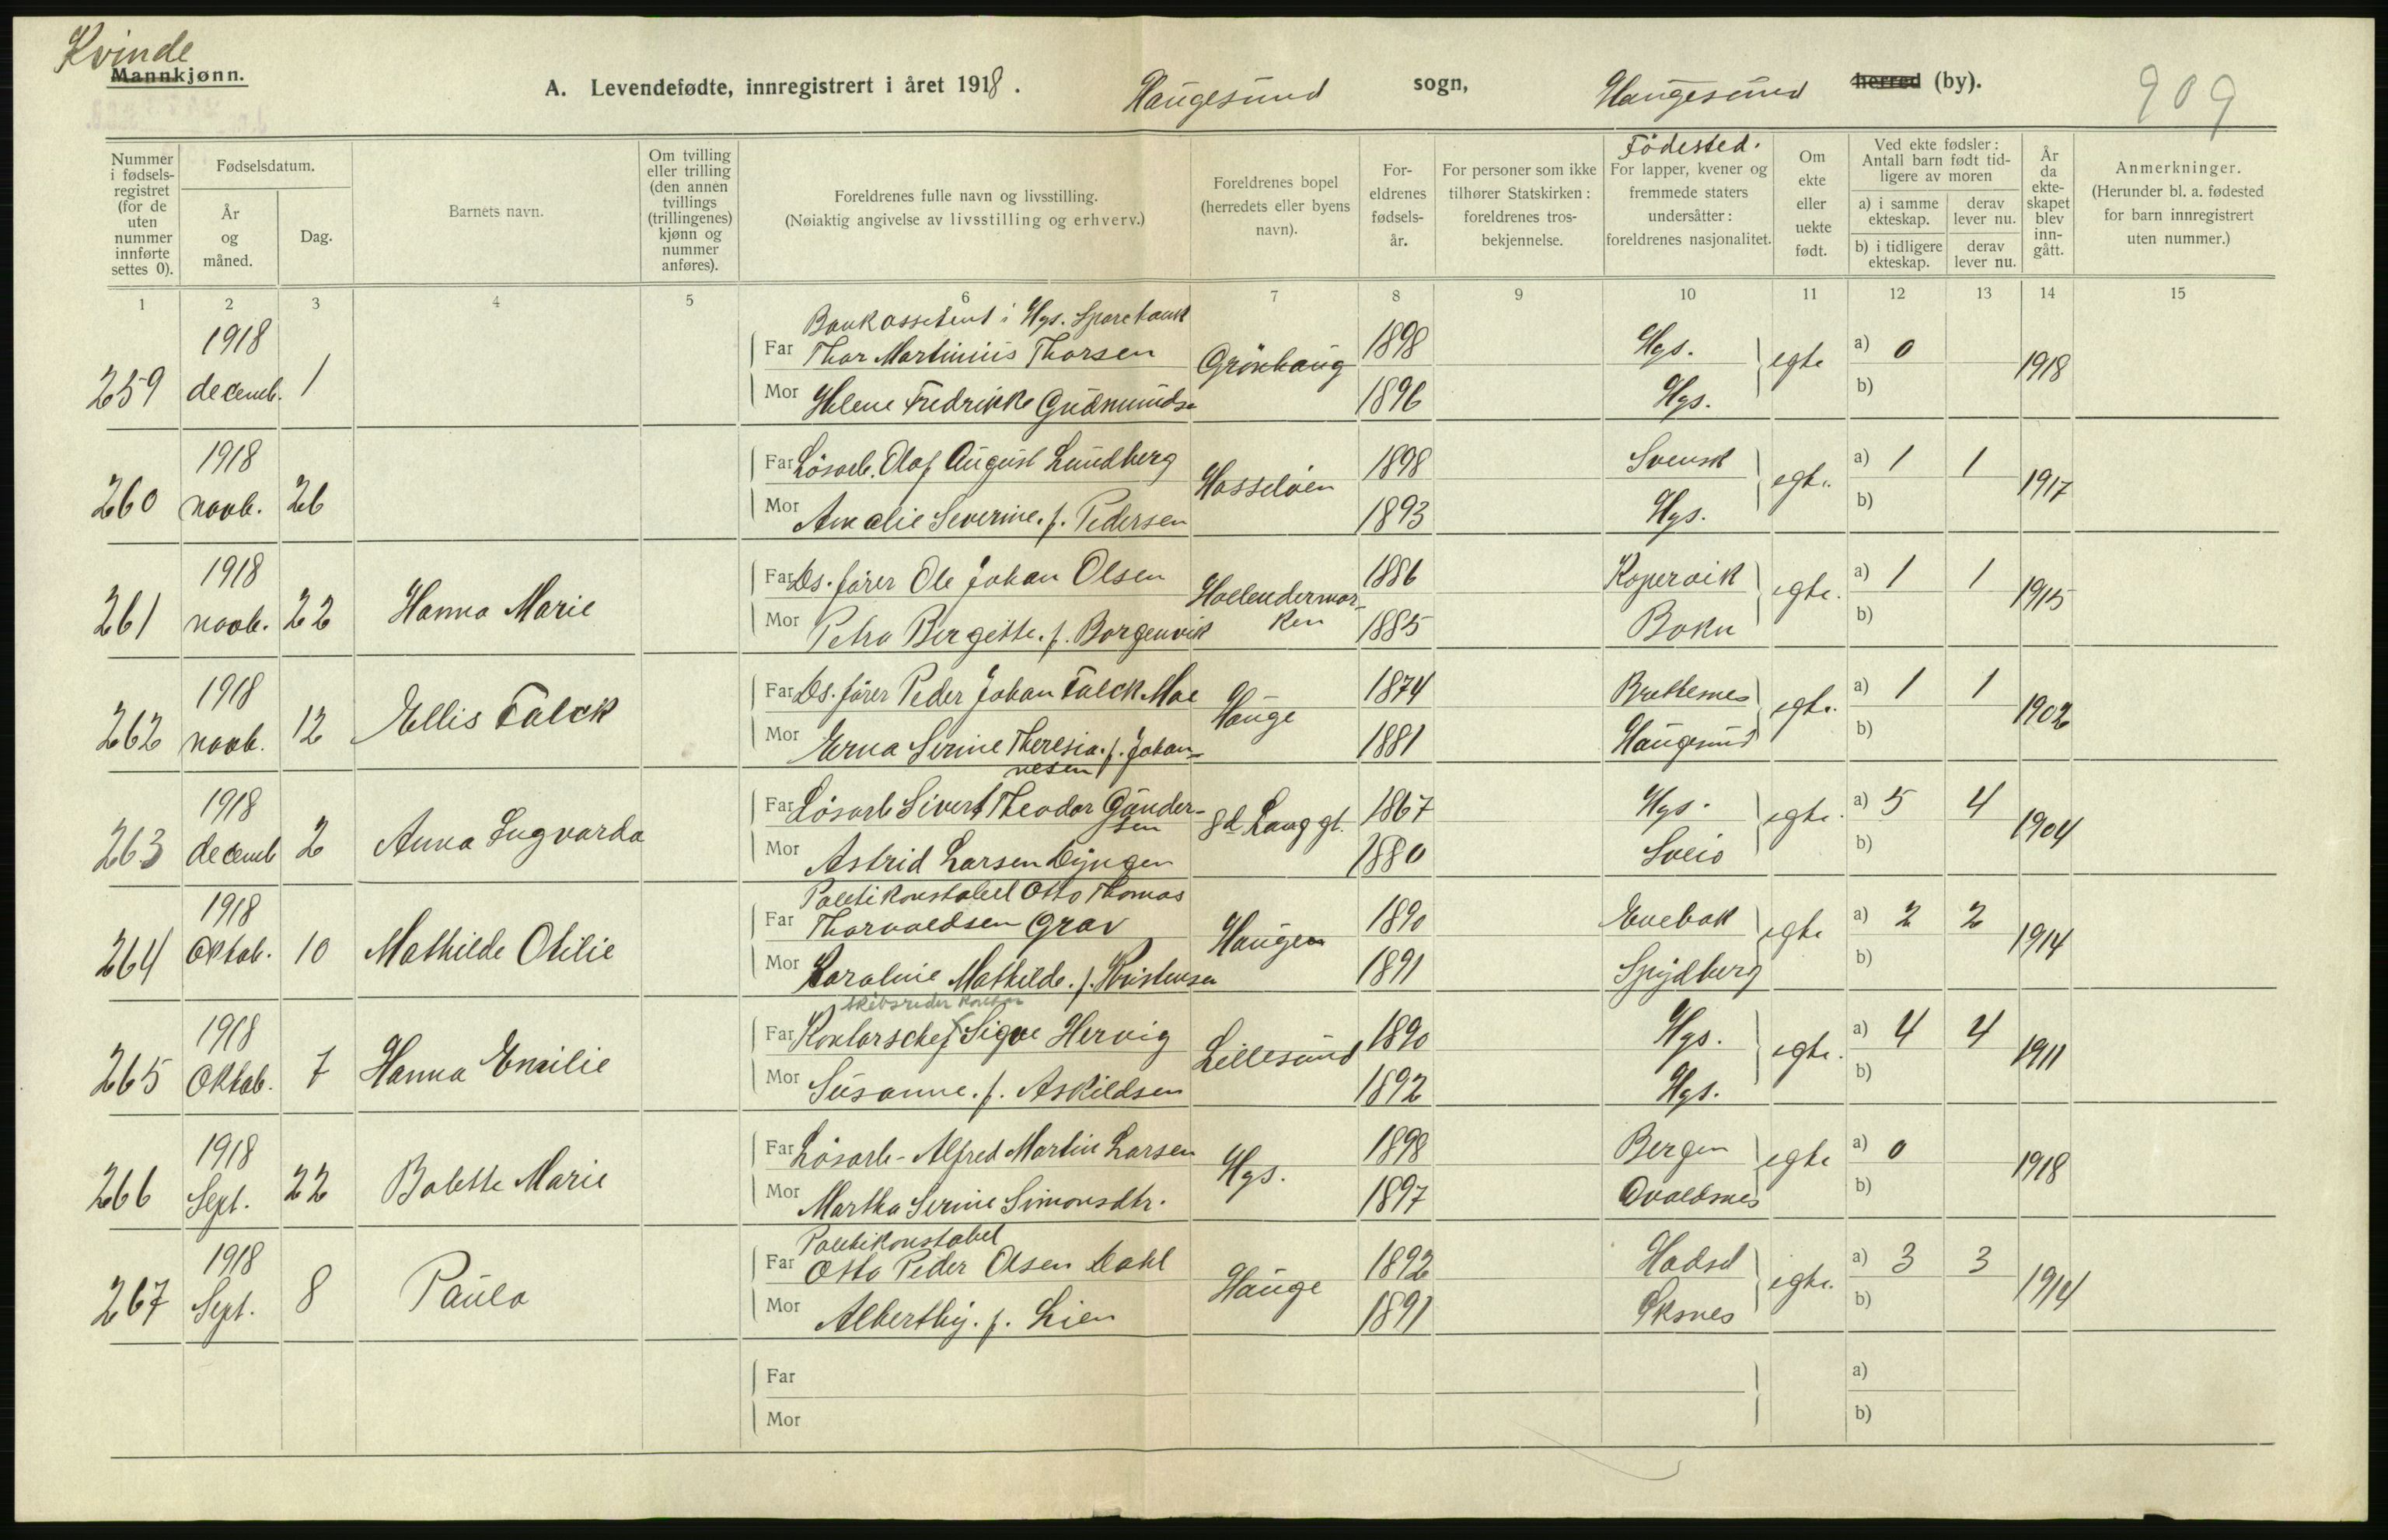 Kvinde
Mannkjønn.
A. Levendefødte, innregistrert i året 1918. Haugesund sogn, Haugesund herred (by). 909
Nummer i fødsels-registret (for de uten nummer innførte settes 0).
Fødselsdatum.
År og måned.
Dag.
Barnets navn.
Om tvilling eller trilling (den annen tvillings (trillingenes) kjønn og nummer anføres).
Foreldrenes fulle navn og livsstilling.
(Nøiaktig angivelse av livsstilling og erhverv.)
Foreldrenes bopel (herredets eller byens navn).
For-eldrenes fødsels-år.
For personer som ikke tilhører Statskirken: foreldrenes tros-bekjennelse.
Födested.
For lapper, kvener og fremmede staters undersåtter: foreldrenes nasjonalitet.
Om ekte eller uekte født.
Ved ekte fødsler: Antall barn født tid-ligere av moren
a) i samme ekteskap.
derav lever nu.
b) i tidligere ekteskap.
derav lever nu.
År da ekte-skapet blev inn-gått.
Anmerkninger.
(Herunder bl. a. fødested for barn innregistrert uten nummer.)
1 2 3 4 5 6 7 8 9 10 11 12 13 14 15
Bankassistent i Hgs. Sparebank
259 1918 decemb. 1 Far Thor Martinius Thorsen Grönhaug 1898 Hgs. egte a) 0 1918
Mor Helene Fredrikke Gudmundse 1896 Hgs. b)
260 1918 novb. 26 Far Lösarb. Olaf August Lundberg Hasseløen 1898 Svensk egte. a) 1 1 1917
Mor Amalie Severine. f. Pedersen 1893 Hgs. b)
261 1918 novb. 22 Hanna Marie Far Ds. förer Ole Johan Olsen Haelendermar- 1886 Kopervik egte. a) 1 1 1915
Mor Petra Bergitte. f. Borgenvik ken 1885 Bokn b)
262 1918 novb. 12 Ellis Falck Far Ds. förer Peder Johan Falck Moe Hauge 1874 Brettesnes egte. a) 1 1 1902
Mor Erna Serine Theresia. f. Johan- 1881 Haugesund b)
nesen
263 1918 decemb 2 Anna Ingvarda Far Lösarb Sivert Theodor Gunder- gd. Langgt. 1867 Hgs. egte. a) 5 4 1904
sen
Mor Astrid Larsen Dyngen 1880 Sveio b)
Politikonstabel Otto Thomas
264 1918 Oktob. 10 Mathilde Otilie Far Thorvaldsen Grav Haugen 1890 Evebak egte a) 2 2 1914
Mor Karoline Mathilde. f. Kristensen 1891 Spydberg b)
skibsreder kontor
265 1918 Oktob. 7 Hanna Emilie Far Kontorschef Sigve Hervig Lillesund 1890 Hgs. egte. a) 4 4 1911
Mor Susanne. f. Askildsen 1892 Hgs. b)
266 1918 Sept. 22 Bolette Marie Far Lösarb- Alfred Martin Larsen Hgs. 1898 Bergen egte a) 0 1918
Mor Martha Serine Simonsdtr. 1897 Avaldsnes b)
Politikonstabel
267 1918 Sept. 8 Paula Far Otto Peder Olsen Dahl Hauge 1892 Hadsel egte. a) 3 3 1914
Mor Alberthy. f. Lien 1891 Øksnes b)
Far a)
Mor b)